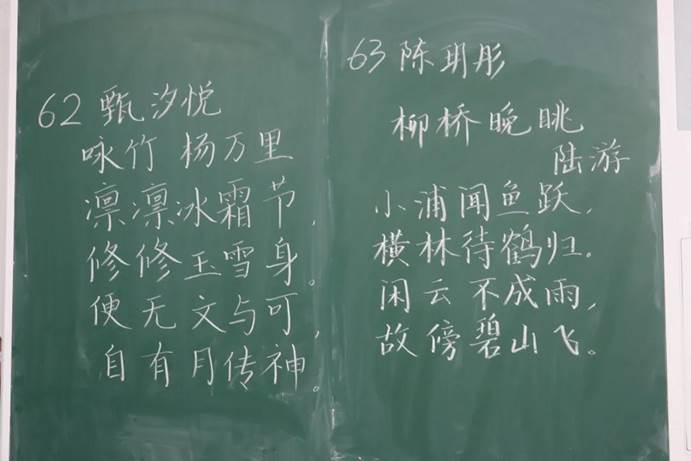 62 甄汐悦
咏竹 杨万里
凛凛冰霜节，
修修玉雪身。
便无文与可，
自有月传神。
63 陈玥彤
柳桥晚眺
陆游
小浦闻鱼跃，
横林待鹤归。
闲云不成雨，
故傍碧山飞。